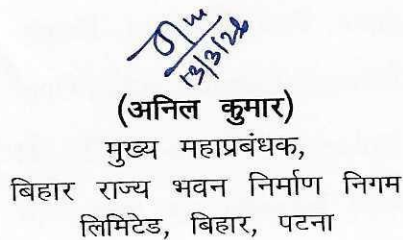 13/3/26
(अनिल कुमार)
मुख्य महाप्रबंधक,
बिहार राज्य भवन निर्माण निगम
लिमिटेड, बिहार, पटना